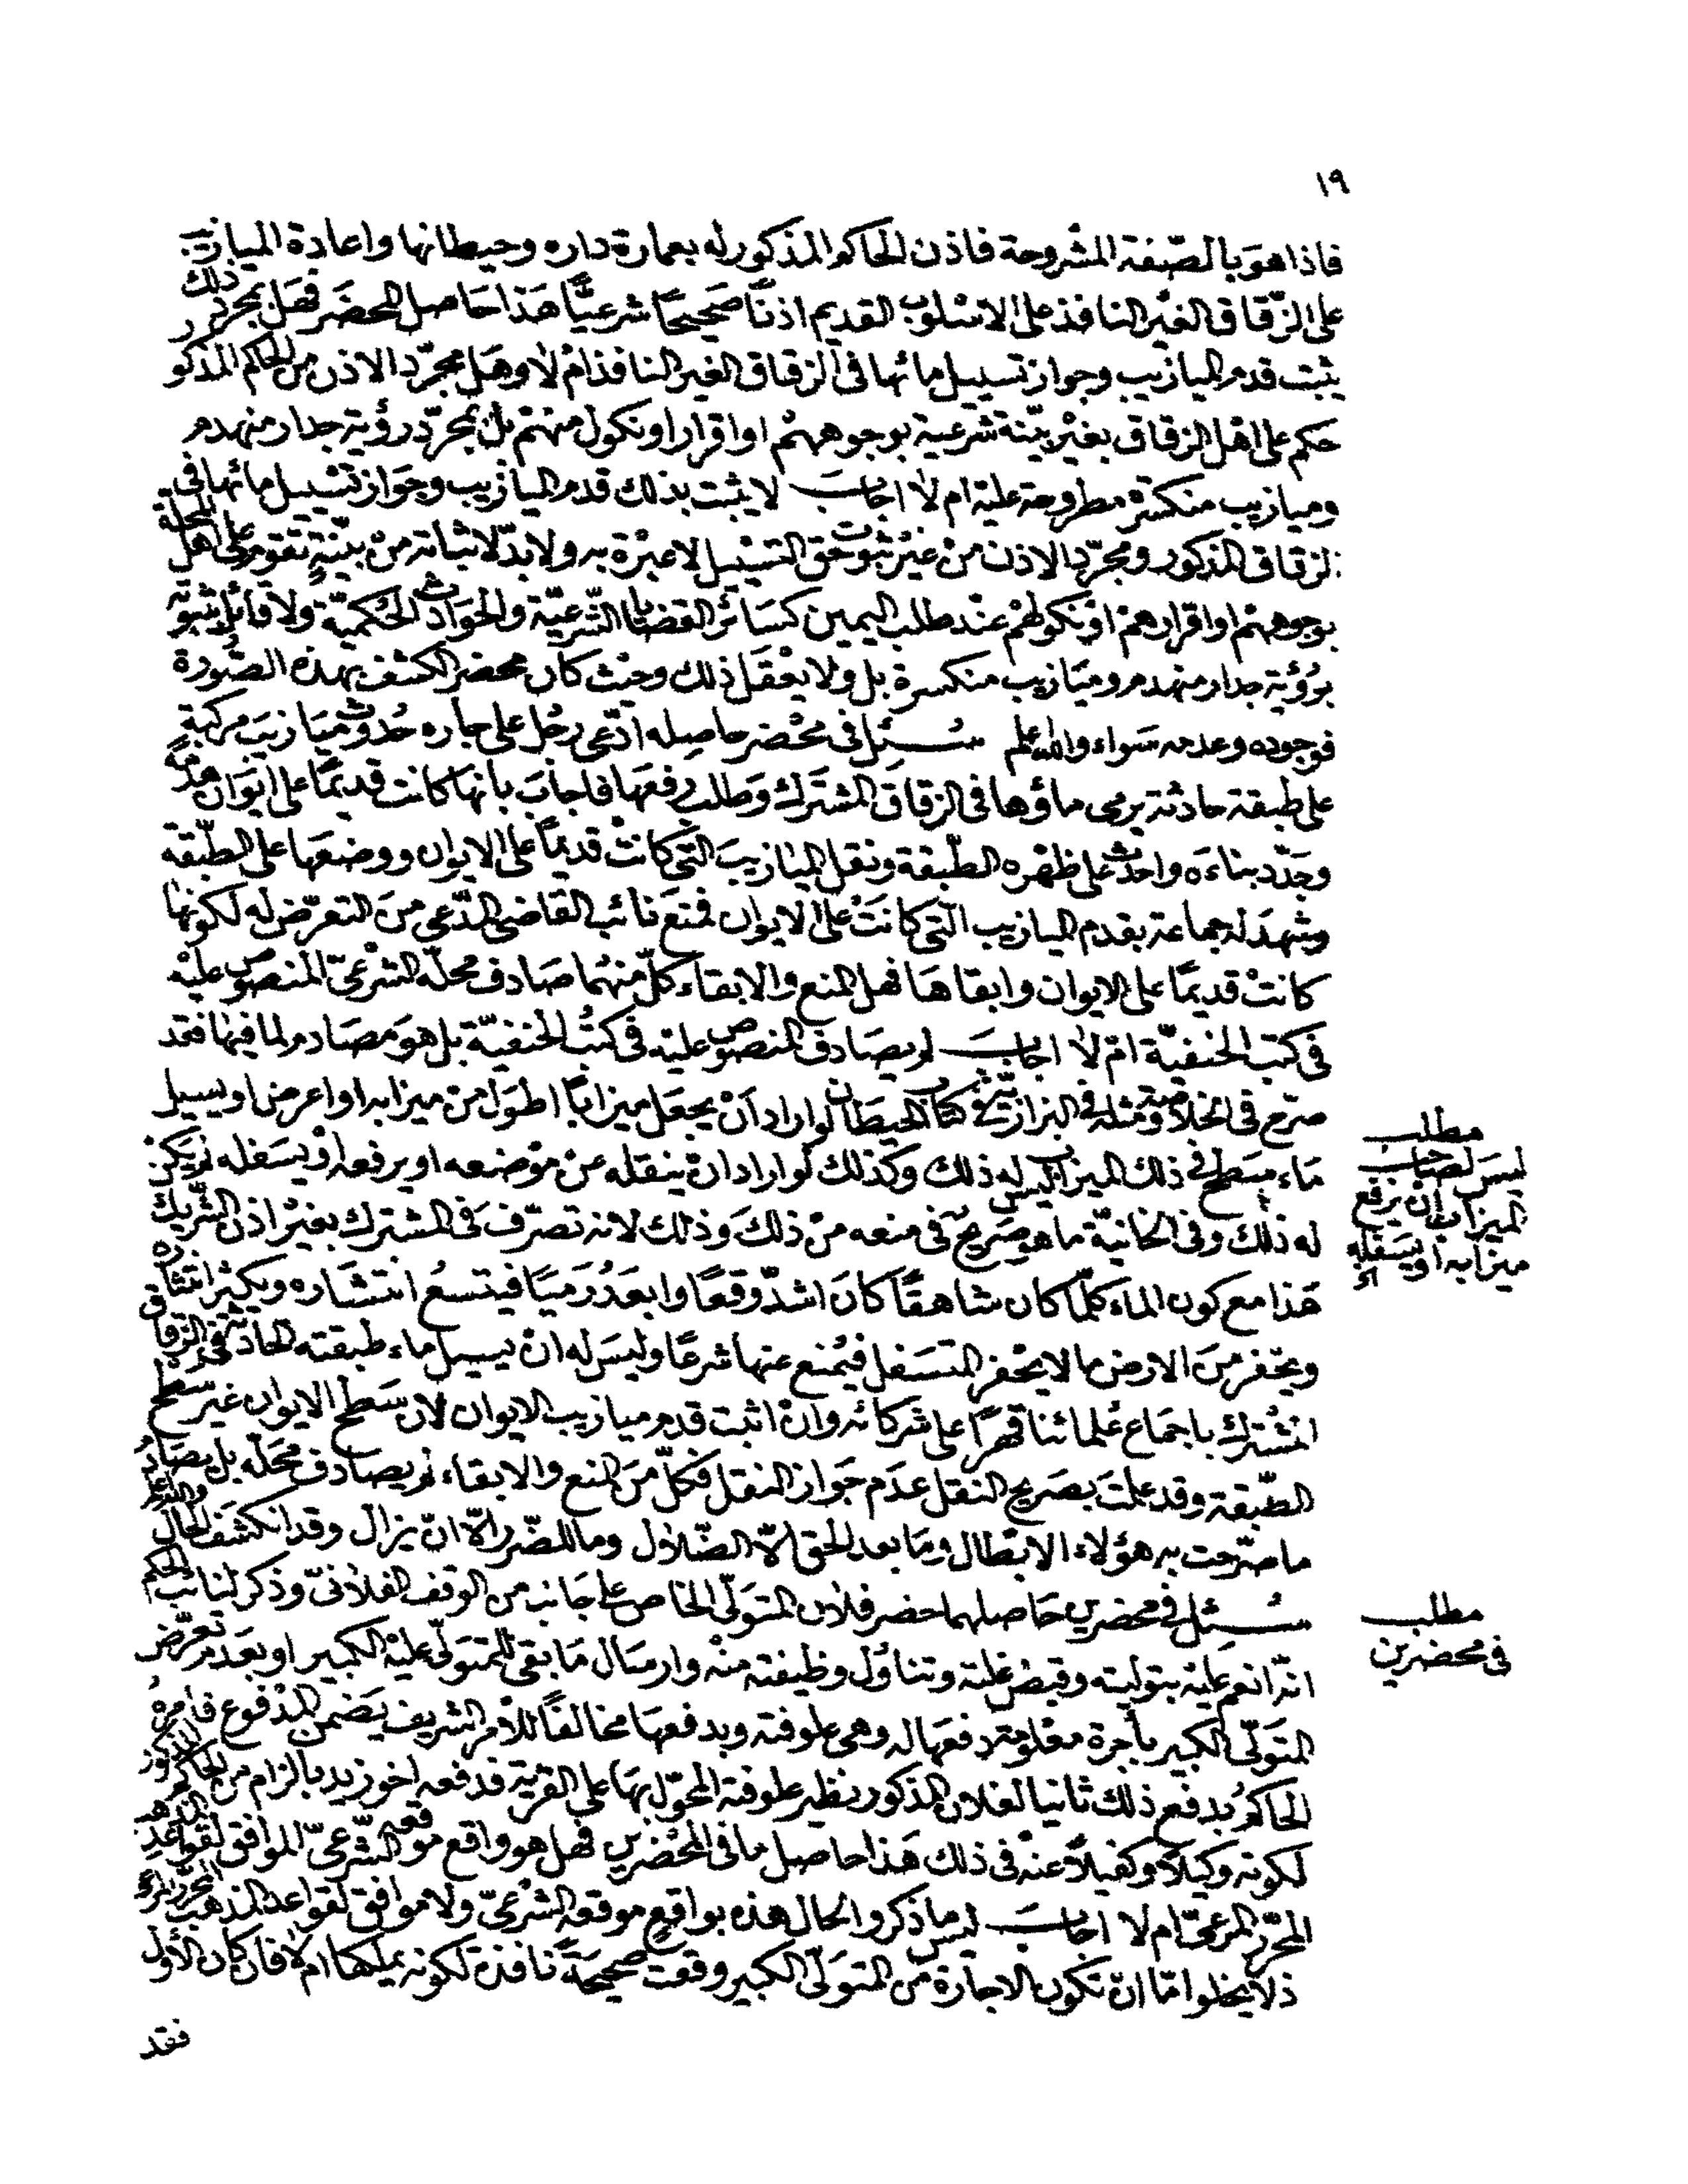 ١٩
فاذا هو بالصّفة المشروحة فاذن الحاكم المذكور له بعمارة داره وحيطانها واعادة الميازيب
على الزّقاق الغير النافذ على الاسلوب القديم اذنًا صَحيحًا شرعيًّا هَذا حَاصل المحضَر فهَل بمجرّد ذلك
يثبت قدم الميازيب وجواز تسييل مائها فى الزقاق الغير النافذ امْ لا وهَل مجرّد الاذن من الحاكم المذكور
حَكم على اهْل الزقاق بغيْر بيّنة شرعية بوجوههمْ او اقرار او نكول منهمْ بلْ بمجرّد رؤية جدار منهدم
وميازيب منكسرة مطروحة عليه ام لا اجاب لا يثبت بذلك قدم الميازيب وجَواز تسْييل مائها فى
الزقاق المذكور ومجرّد الاذن منْ غيْر ثبوت حَق التسْييل لا عبْرة به ولا بدّ لاثباته منْ بيّنةٍ تقوم على اهْل المحلة
بوجوههمْ او اقرارهمْ اوْ نكولهمْ عنْد طلب اليمين كسَائر القضايا الشّرعيّة والحَوادث الحُكميّة ولا قائل بثبوته
برُؤية جدار منهدم وميَازيب منكسرة بل ولا يعْقَل ذلك وحيْث كان محضر الكشف بهذه الصّورة
فوجوده وعدمه سَواء والله اعلم سُئِل فى محْضر حاصله ادّعى رجُل على جاره حُدوث ميَازيبَ مركبة
على طبقة حادثة يرمى ماؤها فى الزقاق المشتَرك وَطلب رفعَها فاجابَ بانها كانت قديمًا على ايوَان هدمه
وجَدّد بناءَه واحدث على ظهْره الطّبقة ونقل الميازيبَ التى كانتْ قديمًا على الايوان ووضعَها على الطّبقة
وشهدَ له جماعة بقدم الميازيب الّتى كانَتْ على الايوان فمنعَ نائب القاضى المدّعى منَ التعرّض له لكونها
كانتْ قديمًا على الايوان وابقاهَا فهل المنع والابقاء كلّ منهُما صَادف محلّه الشرْعىّ المنصوص عليْه
فى كتب الحنفيّة امْ لا اجاب لم يصَادف المنصوص عليْه فى كتُب الحنفيّة بل هوَ مصَادم لما فيها فقد
صرّح فى الخلاصة ومثله فى البزازيّة فى كتاب الحيطان لو اراد انْ يجعَل ميزابًا اطوَل منْ ميزابه او اعرض او يسيل
مَاء سَطح فى ذلك الميزاب ليس له ذلك وَكذلك لو اراد انْ ينقله عنْ موْضعه او يرفعه اوْ يسَفله لم يَكن
له ذلك وفى الخانيّة ما هو صَريح فى منعه منْ ذلكَ وَذلك لانه تصرّف فى المشترك بغيْر اذن الشّريك
هَذا مع كون الماء كلّما كان شاهقًا كانَ اشدّ وَقعًا وابعَدُ رَميًا فيتسعُ انتشَاره ويكثر انتشاره
ويحفر منَ الارض ما لا يحْفر المتسَفل فيُمنع عنها شرعًا وليسَ له انْ يسيل ماء طبقته الحادثة فى الزقاق
المشْترك باجمَاع عُلمائنا قهرًا على شركائه وانْ اثبت قدم ميازيب الايوان لان سَطح الايوان غير سَطح
الطّبقة وقد علمتَ بصَريح النقل عدَم جَواز النقل فكلّ منَ المنع والابقاء لم يصادف محَلّه بل يصَادمُ
ما صَرّحت به هؤلاء الابْطال ومَا بعد الحق الاّ الضّلال وما للضّرر الاّ انْ يزال وقد انكشَف الحَال والله اعلم
سُئِل فى محضرين حَاصلهما حضر فلان المتوَلّى الخاص على جَانب من الوقف الفلانىّ وذكر لنائب الحكم
انّه انعم عليْه بتوليته وقبضْ غلته وتناوُل وظيفته منْه وارسَال مَا بقى للمتوَلّى عليْه الكبير او بعَدم تعرّض
المتَولّى الكبير بأجرة معْلومة دفعَها له وهى علوفته وبدفعهَا مخالفًا للأمْر الشريف يَضمن المدْفوع فامرهُ
الحاكمُ بدفع ذلك ثانيا لفلان المذكور نظير علوفة المحوّل بهَا على القرية فدفعه اخو زيد بالزام من الحاكم المذكور
لكونه وكيلاً وكفيلاً عنْه فى ذلك هَذا حاصل ما فى المحْضرين فهل هو واقع موقعه الشّرعىّ الموافق لقواعد المذهب
المحرّر المرعىّ ام لا اجاب ليس ما ذكر والحال هذه بواقع موقعه الشرْعىّ ولا موافق لقواعد المذهب المحرّر المرعى
ذلا يخلوا مّا انّ تكون الاجارة من المتوَلّى الكبير وقعت صحيحَةً نافذة لكونه يملكها امْ لا فان كان الأول
فقد
مطلب
ليسَ لصَاحب
الميزاب انْ يرفع
ميزابه او يسَفله
مطلب
فى محضرين